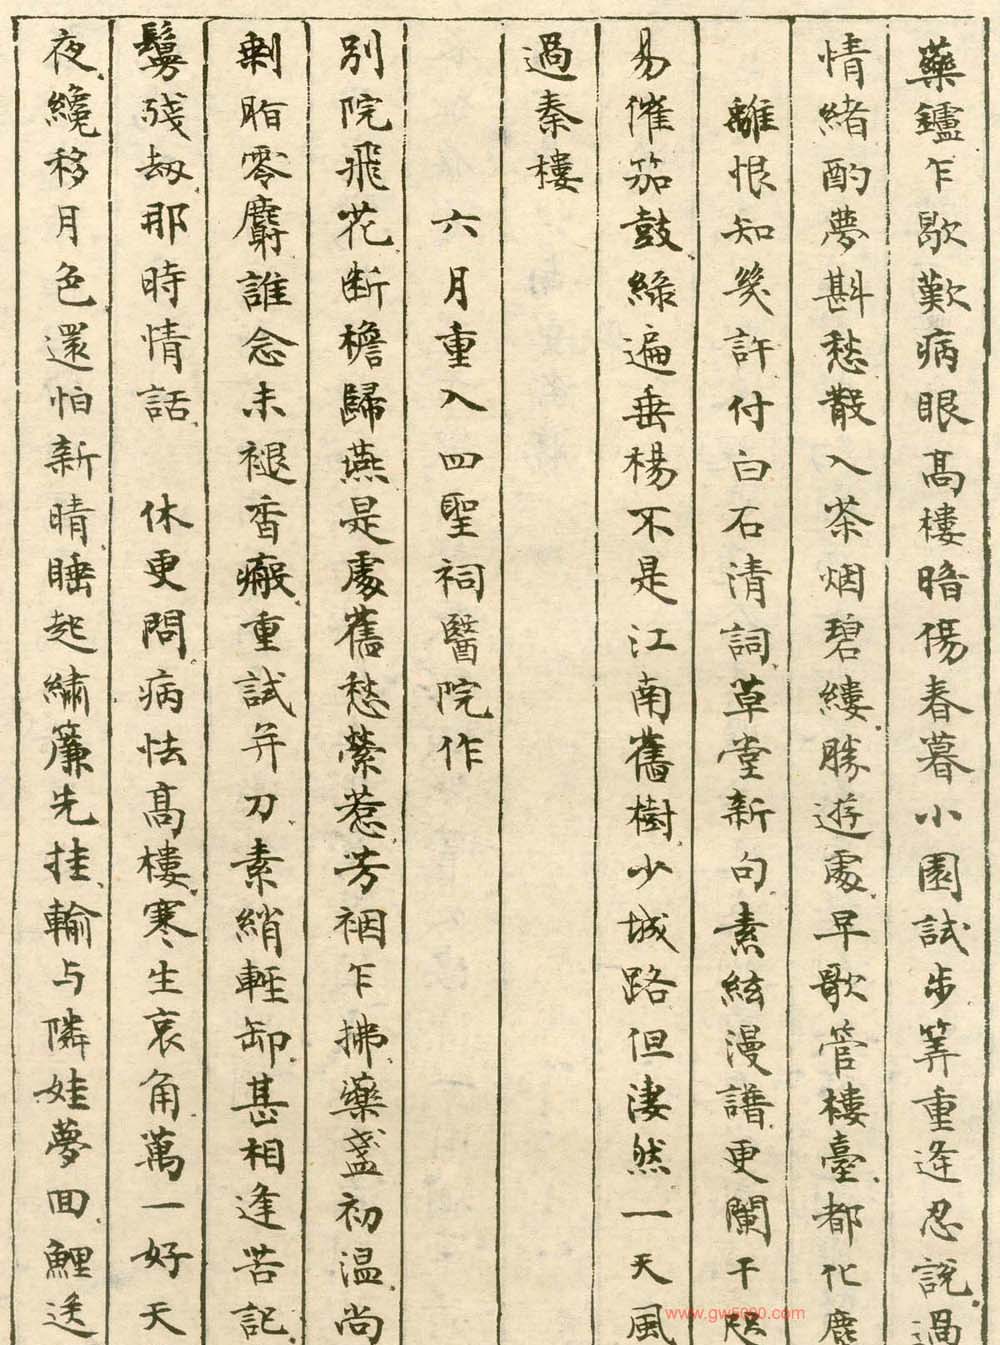 藥鑪乍歇歎病眼髙樓暗傷春暮小園試步筭重逢忍說過
情緒酌夢斟愁散入茶烟碧縷勝遊處早歌管樓臺都化鹿
離恨知幾許付白石清詞草堂新句素絃漫譜更闌干
易催笳鼓綠遍垂楊不是江南舊樹少城路但淒然一天風
過秦樓
六月重入四聖祠醫院作
別院飛花断檐歸燕是處舊愁縈惹芳裀乍拂藥盞初温尚
剰脂零麝誰念未褪香瘢重試并刀素綃輕卸甚相逢苦記
鬘殘劫那時情話 休更問病怯髙樓寒生哀角萬一好天
夜纔移月色還怕新晴睡起繡簾先挂輸与隣娃夢回鯉送
www.gw5000.com